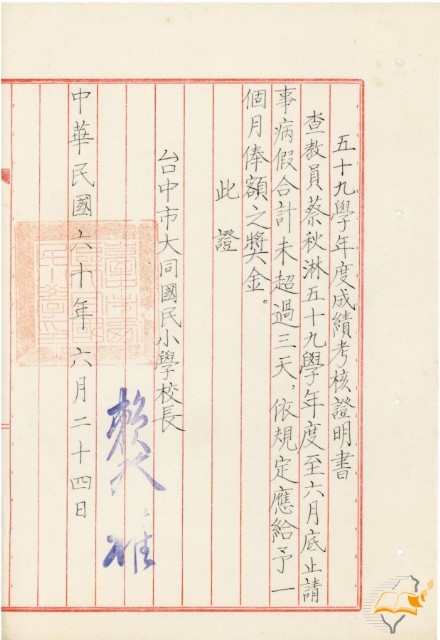 五十九學年度成績考核證明書
查教員蔡秋淋五十九學年度至六月底止請
事病假合計未超過三天，依規定應給予一
個月俸額之獎金。
此證
台中市大同國民小學校長
中華民國六十年六月二十四日